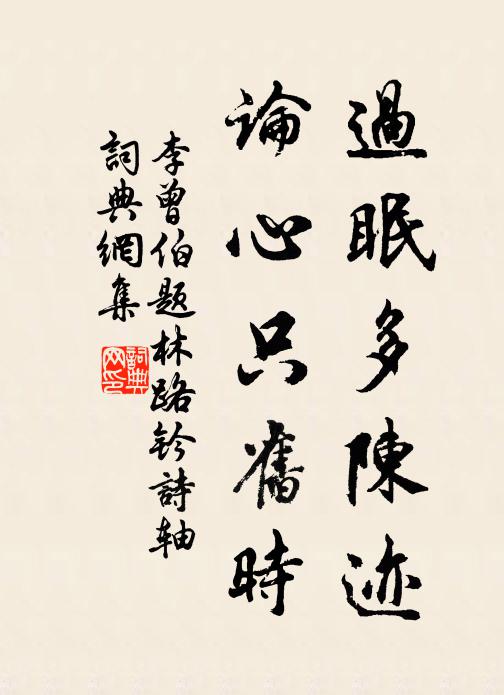 過眠多陳迹
論心只舊時
李曾伯題林路鈐詩軸
詞典網集
詞典
网印